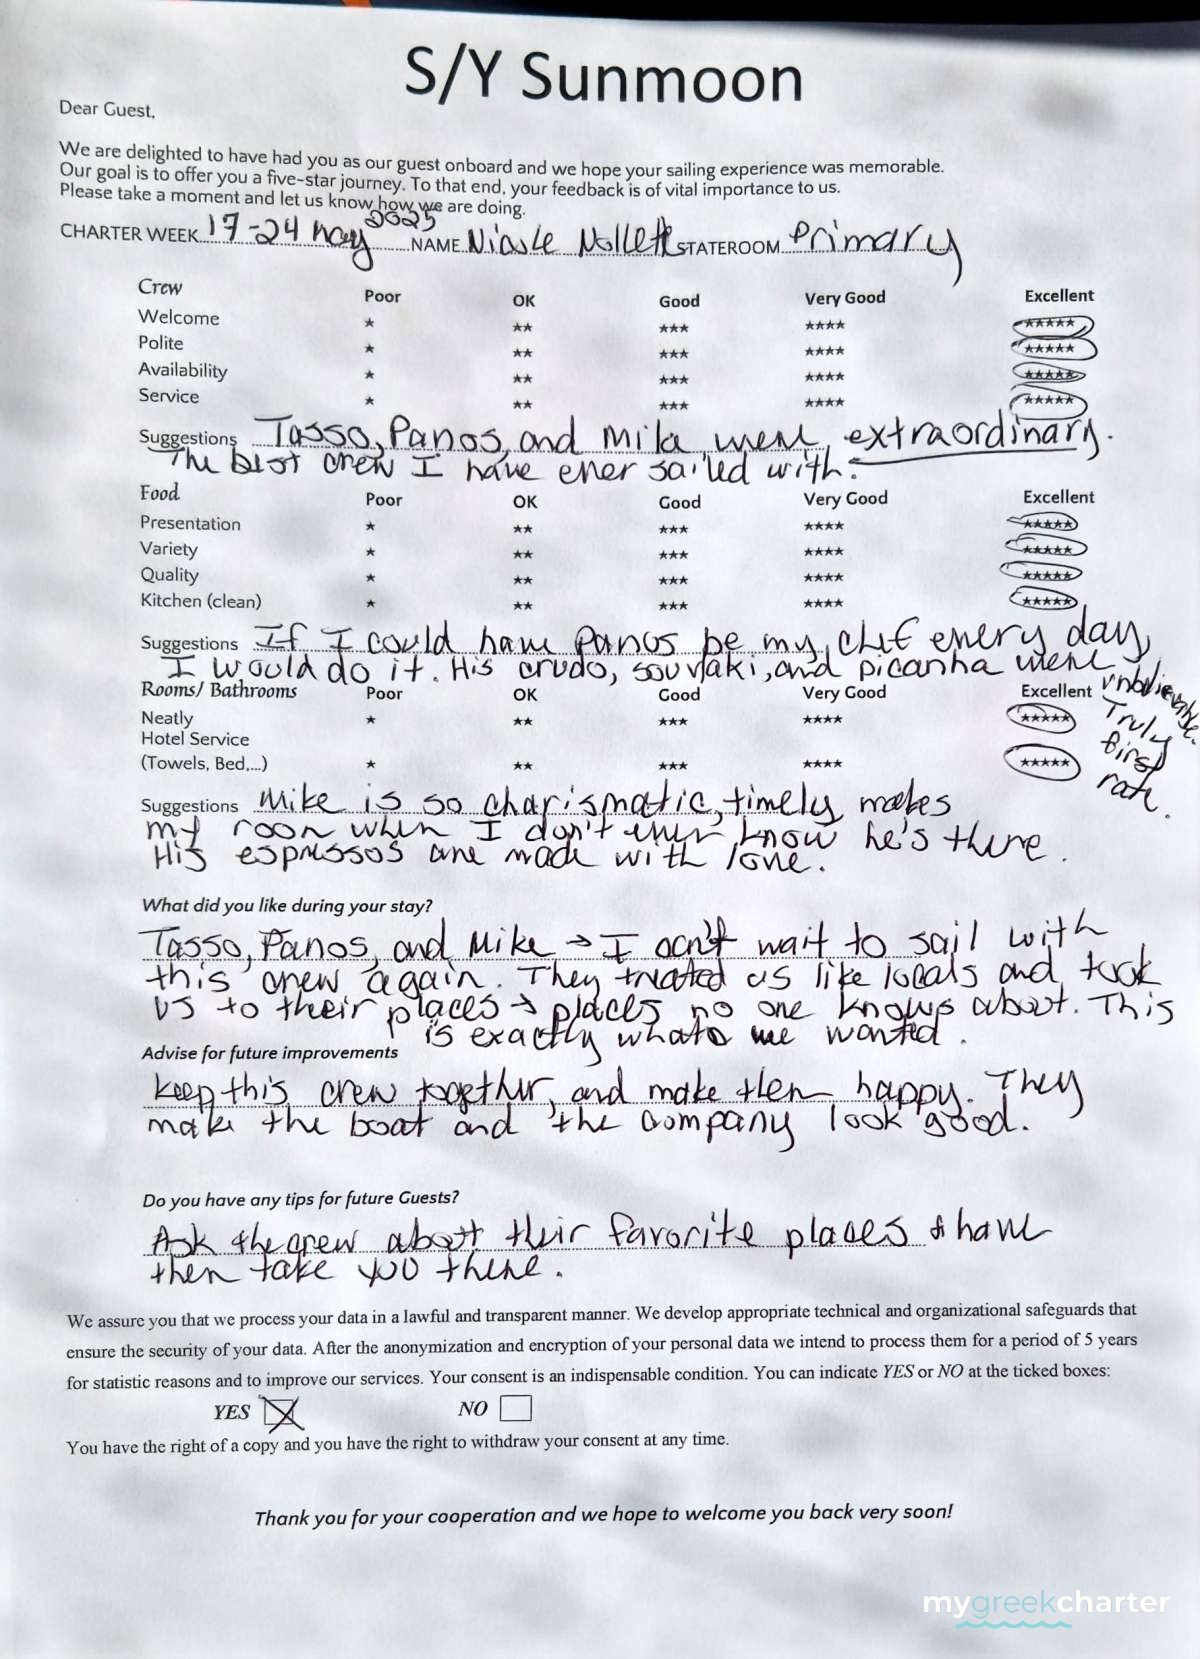 S/Y Sunmoon
Dear Guest,
We are delighted to have had you as our guest onboard and we hope your sailing experience was memorable.
Our goal is to offer you a five-star journey. To that end, your feedback is of vital importance to us.
Please take a moment and let us know how we are doing.
CHARTER WEEK 17-24 May 2025 NAME Nicole STATEROOM Primary
Crew Poor OK Good Very Good Excellent
Welcome ★ ★★ ★★★ ★★★★ ★★★★★
Polite ★ ★★ ★★★ ★★★★ ★★★★★
Availability ★ ★★ ★★★ ★★★★ ★★★★★
Service ★ ★★ ★★★ ★★★★ ★★★★★
Suggestions Tasso, Panos, and Mike were extraordinary.
The best crew I have ever sailed with.
Food Poor OK Good Very Good Excellent
Presentation ★ ★★ ★★★ ★★★★ ★★★★★
Variety ★ ★★ ★★★ ★★★★ ★★★★★
Quality ★ ★★ ★★★ ★★★★ ★★★★★
Kitchen (clean) ★ ★★ ★★★ ★★★★ ★★★★★
Suggestions If I could have Panos be my chef every day,
I would do it. His crudo, souvlaki, and picanha were
unbelievable.
Truly
first
rate.
Rooms/ Bathrooms Poor OK Good Very Good Excellent
Neatly ★ ★★ ★★★ ★★★★ ★★★★★
Hotel Service
(Towels, Bed,...) ★ ★★ ★★★ ★★★★ ★★★★★
Suggestions Mike is so charismatic, timely, makes
my room when I don't even know he's there.
His espressos are made with love.
What did you like during your stay?
Tasso, Panos, and Mike → I can't wait to sail with
this crew again. They treated us like locals and took
us to their places → places no one knows about. This
is exactly what we wanted.
Advise for future improvements
Keep this crew together, and make them happy. They
make the boat and the company look good.
Do you have any tips for future Guests?
Ask the crew about their favorite places & have
them take you there.
We assure you that we process your data in a lawful and transparent manner. We develop appropriate technical and organizational safeguards that
ensure the security of your data. After the anonymization and encryption of your personal data we intend to process them for a period of 5 years
for statistic reasons and to improve our services. Your consent is an indispensable condition. You can indicate YES or NO at the ticked boxes:
YES NO
You have the right of a copy and you have the right to withdraw your consent at any time.
Thank you for your cooperation and we hope to welcome you back very soon!
mygreekcharter